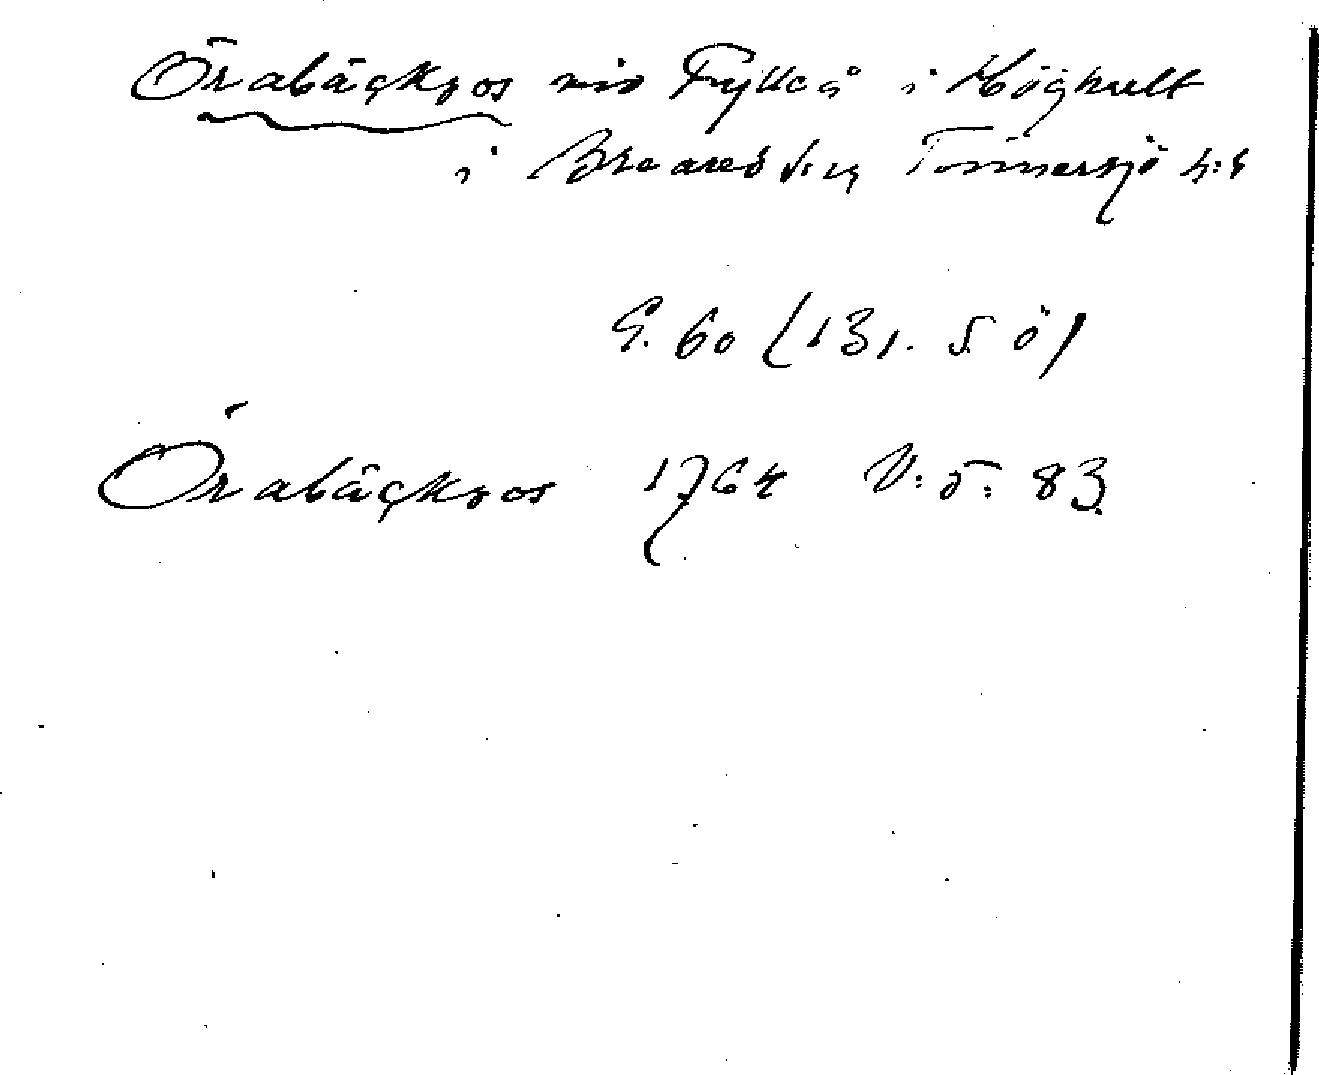 Örabäcksos vid Fylleå i Höghult
i Breared s:n Tönnersjö h:d
G. 60 (131. S. ö)
Örabäcksos 1764 V: 5: 83